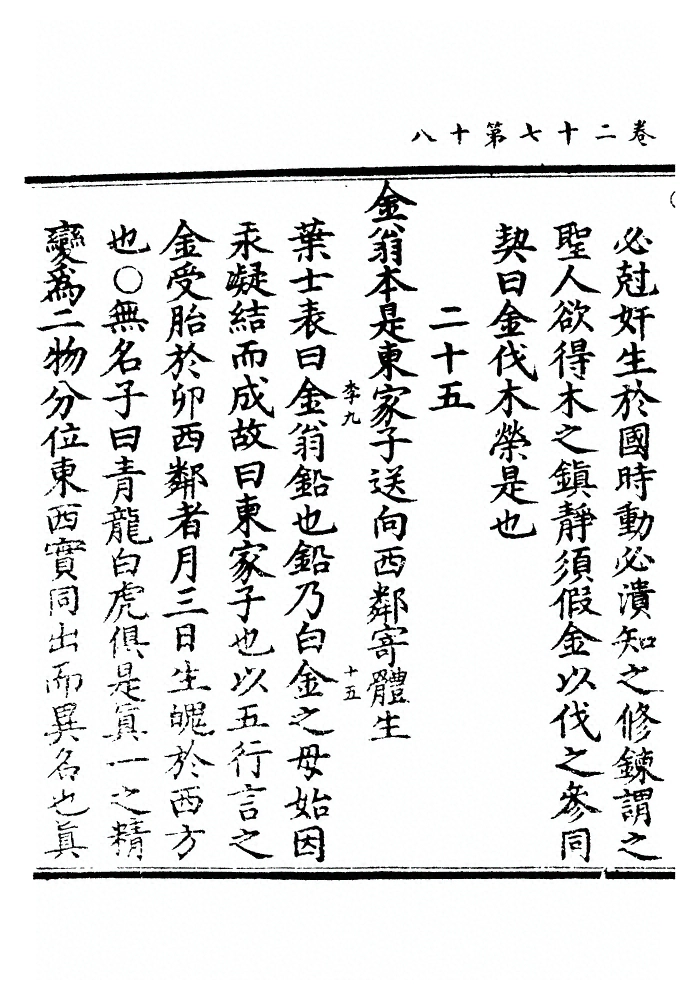 卷二十七第十八
必尅奸生於國時動必潰知之修鍊謂之
聖人欲得木之鎮靜須假金以伐之參同
契曰金伐木榮是也
二十五
金翁本是東家子送向西鄰寄體生
李九
十五
葉士表曰金翁鉛也鉛乃白金之母始因
汞凝結而成故曰東家子也以五行言之
金受胎於卯西鄰者月三日生魄於西方
也○無名子曰青龍白虎俱是真一之精
變為二物分位東西實同出而異名也眞